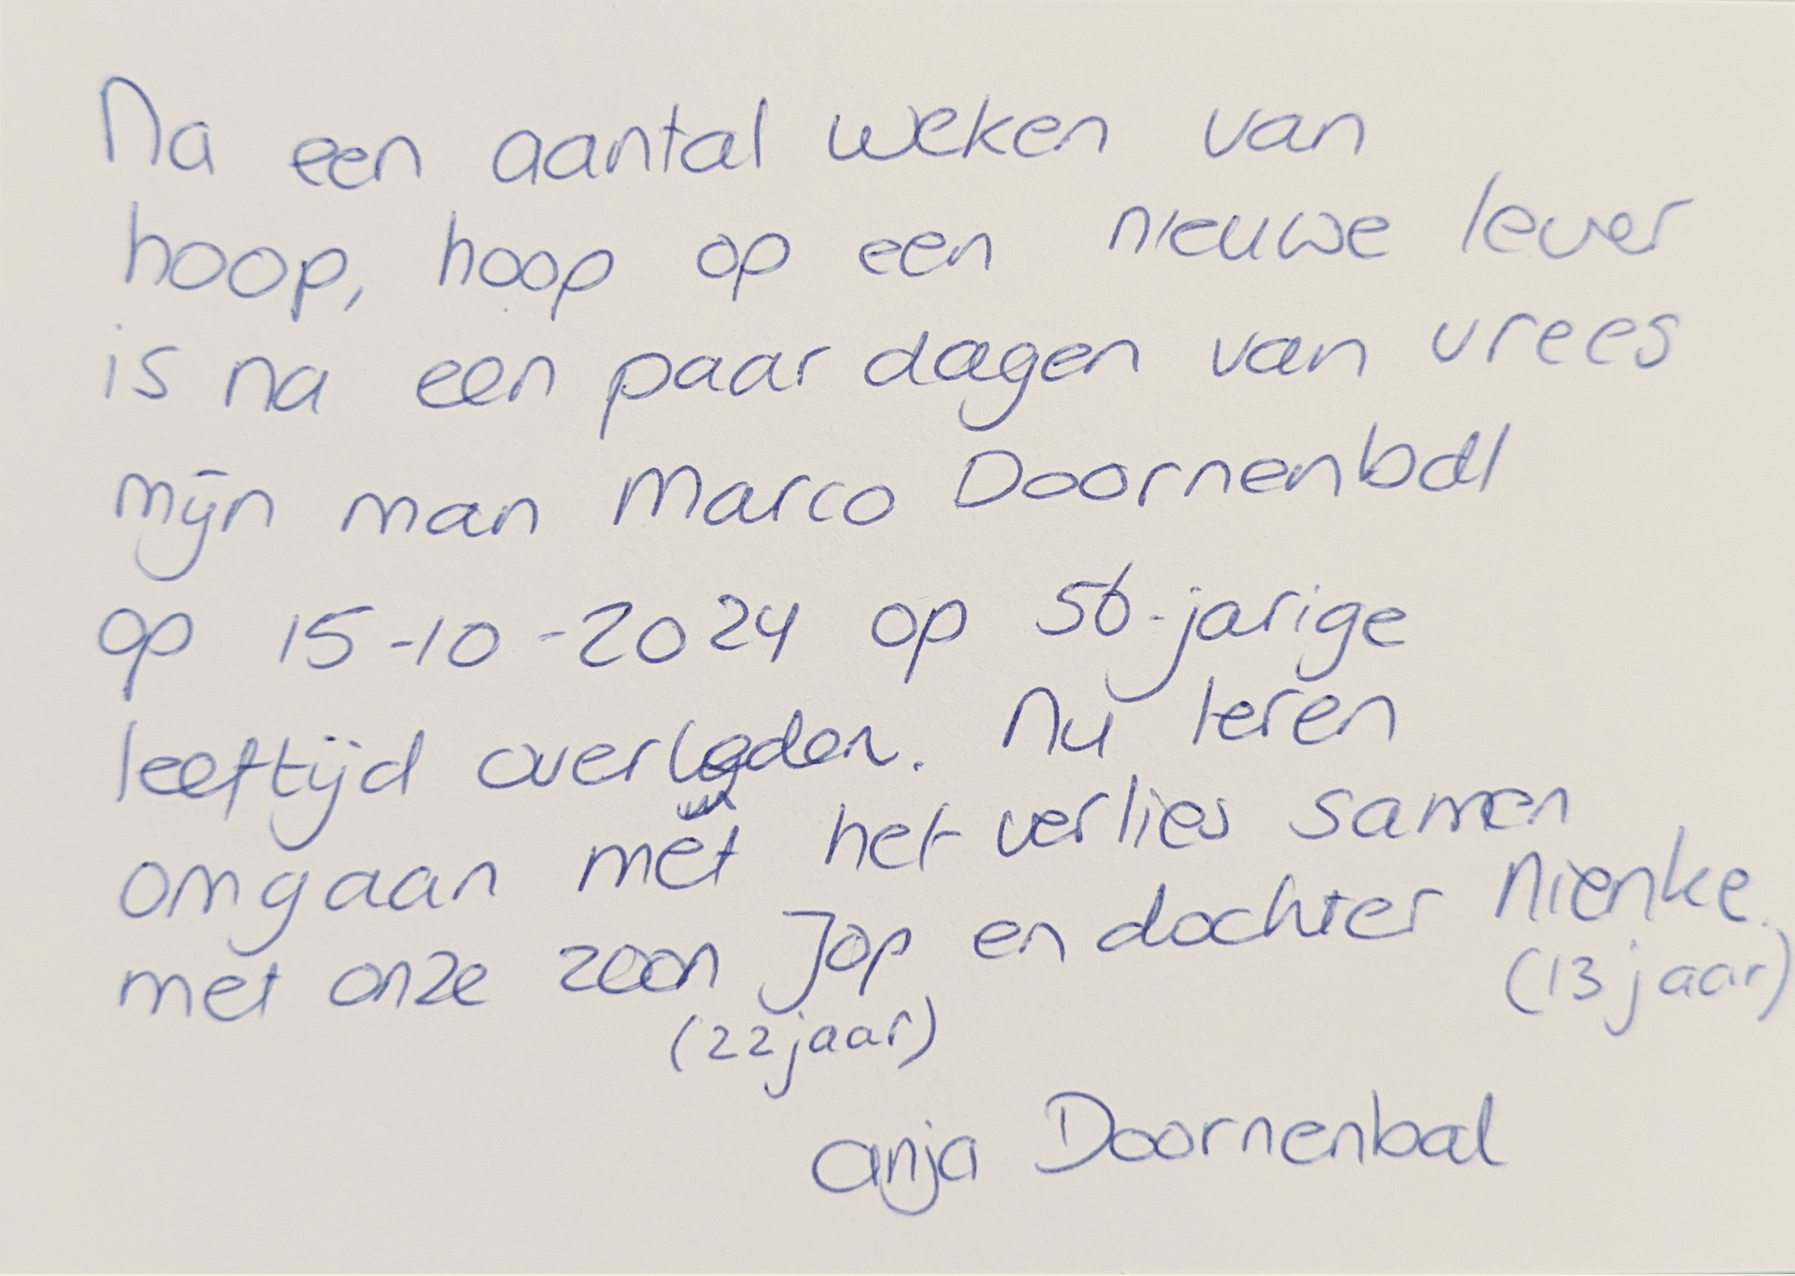 Na een aantal weken van
hoop, hoop op een nieuwe lever
is na een paar dagen van vrees
mijn man Marco Doornenbal
op 15-10-2024 op 56-jarige
leeftijd overleden. Nu leren
omgaan met het verlies samen
met onze zoon Jop en dochter Nienke.
(22 jaar) (13 jaar)
Anja Doornenbal